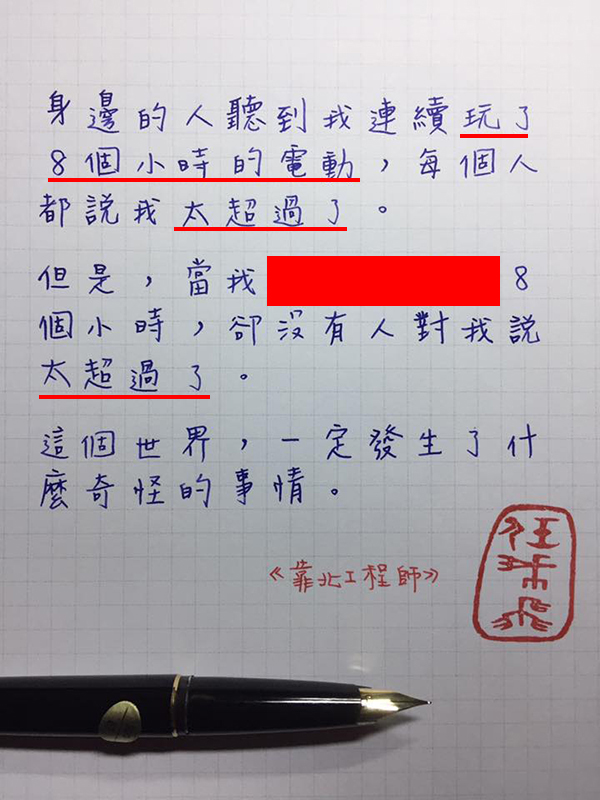 身邊的人聽到我連續玩了
8個小時的電動，每個人
都說我太超過了。
但是，當我 8
個小時，卻沒有人對我說
太超過了。
這個世界，一定發生了什
麼奇怪的事情。
《靠北工程師》